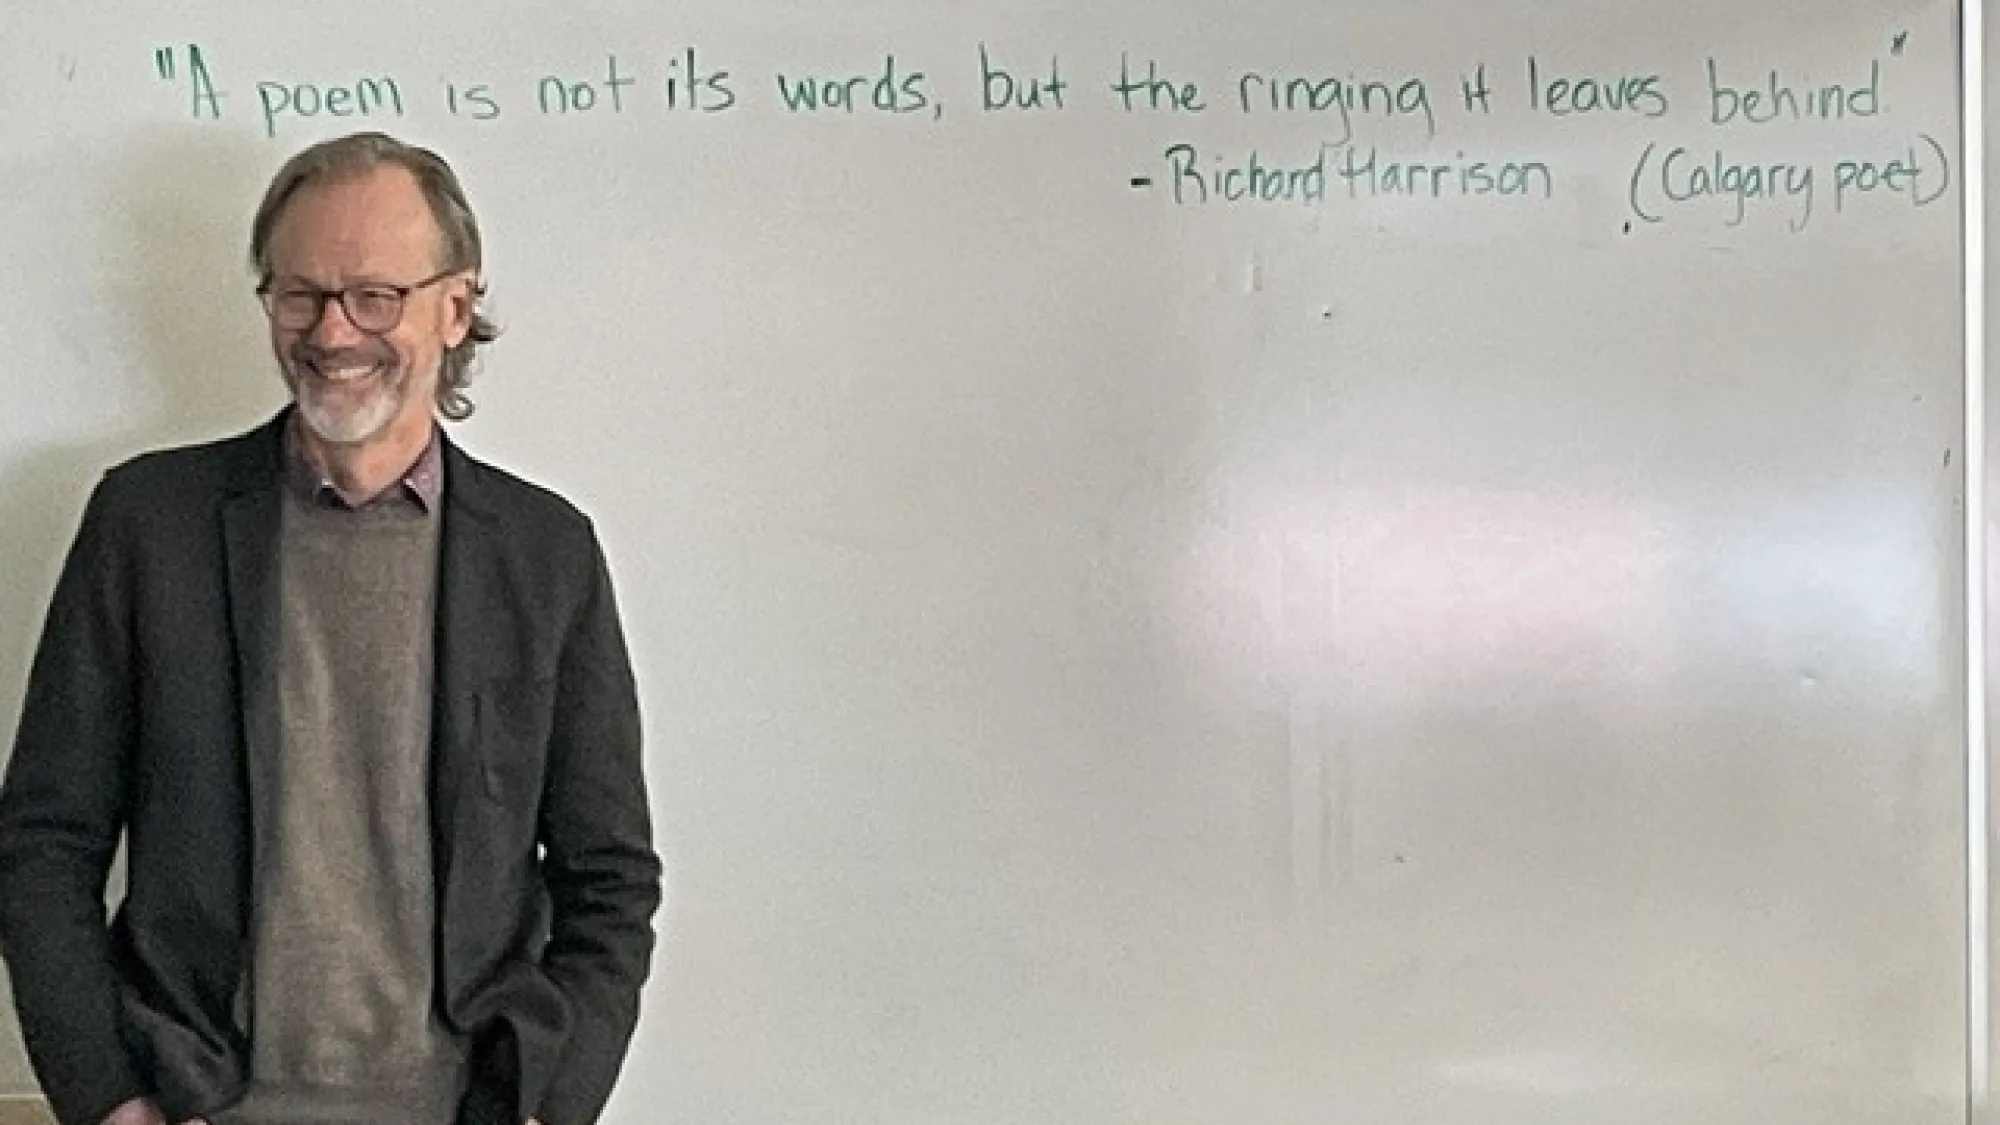 "A poem is not its words, but the ringing it leaves behind."
- Richard Harrison (Calgary poet)